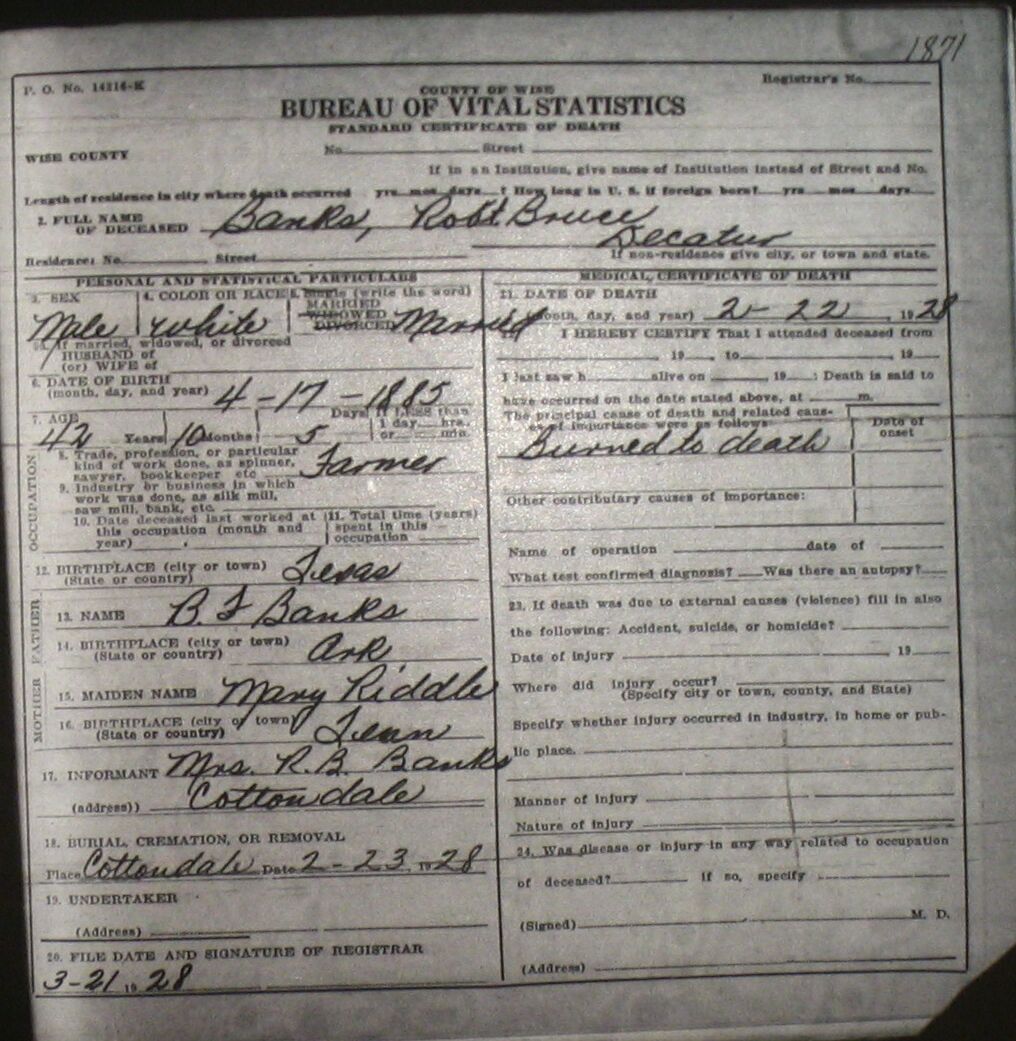 1871
P. O. No. 14216-K
Registrar's No.
COUNTY OF WISE
BUREAU OF VITAL STATISTICS
STANDARD CERTIFICATE OF DEATH
WISE COUNTY
No. Street
If in an Institution, give name of Institution instead of Street and No.
Length of residence in city where death occurred yrs mos days ? How long in U. S. if foreign born? yrs mos days
2. FULL NAME OF DECEASED Banks, Robt Bruce
Decatur
Residence: No. Street If non-residence give city, or town and state.
PERSONAL AND STATISTICAL PARTICULARS
3. SEX Male
4. COLOR OR RACE White
5. Single (write the word)
MARRIED
WIDOWED
DIVORCED Married
5a. If married, widowed, or divorced
HUSBAND of
(or) WIFE of
6. DATE OF BIRTH
(month, day, and year) 4-17-1885
7. AGE
42 Years 10 Months 5 Days If LESS than
1 day hrs.
or min.
OCCUPATION
8. Trade, profession, or particular
kind of work done, as spinner,
sawyer, bookkeeper etc Farmer
9. Industry or business in which
work was done, as silk mill,
saw mill, bank, etc.
10. Date deceased last worked at
this occupation (month and
year)
11. Total time (years)
spent in this
occupation
12. BIRTHPLACE (city or town)
(State or country) Texas
FATHER
13. NAME B. F Banks
14. BIRTHPLACE (city or town)
(State or country) Ark
MOTHER
15. MAIDEN NAME Mary Riddle
16. BIRTHPLACE (city or town)
(State or country) Tenn
17. INFORMANT Mrs. R. B. Banks
(address)) Cottondale
18. BURIAL, CREMATION, OR REMOVAL
Place Cottondale Date 2-23 1928
19. UNDERTAKER
(Address)
20. FILE DATE AND SIGNATURE OF REGISTRAR
3-21 1928
MEDICAL, CERTIFICATE OF DEATH
21. DATE OF DEATH
(month, day, and year) 2-22 1928
I HEREBY CERTIFY That I attended deceased from
19 to 19
I last saw h alive on 19 : Death is said to
have occurred on the date stated above, at m.
The principal cause of death and related causes
of importance were as follows
Date of
onset
Burned to death
Other contributory causes of importance:
Name of operation date of
What test confirmed diagnosis? Was there an autopsy?
23. If death was due to external causes (violence) fill in also
the following: Accident, suicide, or homicide?
Date of injury 19
Where did injury occur?
(Specify city or town, county, and State)
Specify whether injury occurred in industry, in home or pub-
lic place.
Manner of injury
Nature of injury
24. Was disease or injury in any way related to occupation
of deceased? If so, specify
(Signed) M. D.
(Address)